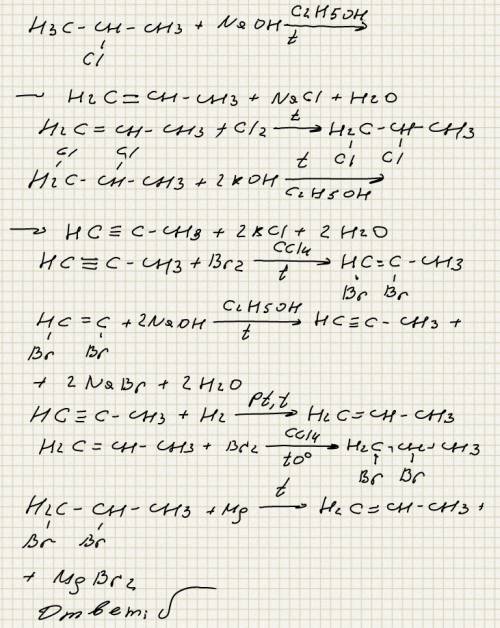 C2H5OH
H3C-CH-CH3 + NaOH ⟶
Cl t
→ H2C=CH-CH3 + NaCl + H2O
H2C=CH-CH3 + Cl2 t⟶ H2C-CH-CH3
Cl Cl t Cl Cl
H2C-CH-CH3 + 2KOH ⟶
C2H5OH
→ HC≡C-CH3 + 2KCl + 2H2O
HC≡C-CH3 + Br2 CCl4⟶ HC=C-CH3
t Br Br
HC=C + 2NaOH C2H5OH⟶ HC≡C-CH3 +
Br Br t
+ 2NaBr + 2H2O
HC≡C-CH3 + H2 Pt,t⟶ H2C=CH-CH3
H2C=CH-CH3 + Br2 CCl4⟶ H2C-CH-CH3
t0° Br Br
H2C-CH-CH3 + Mg t⟶ H2C=CH-CH3 +
Br Br
+ MgBr2
Ответ: